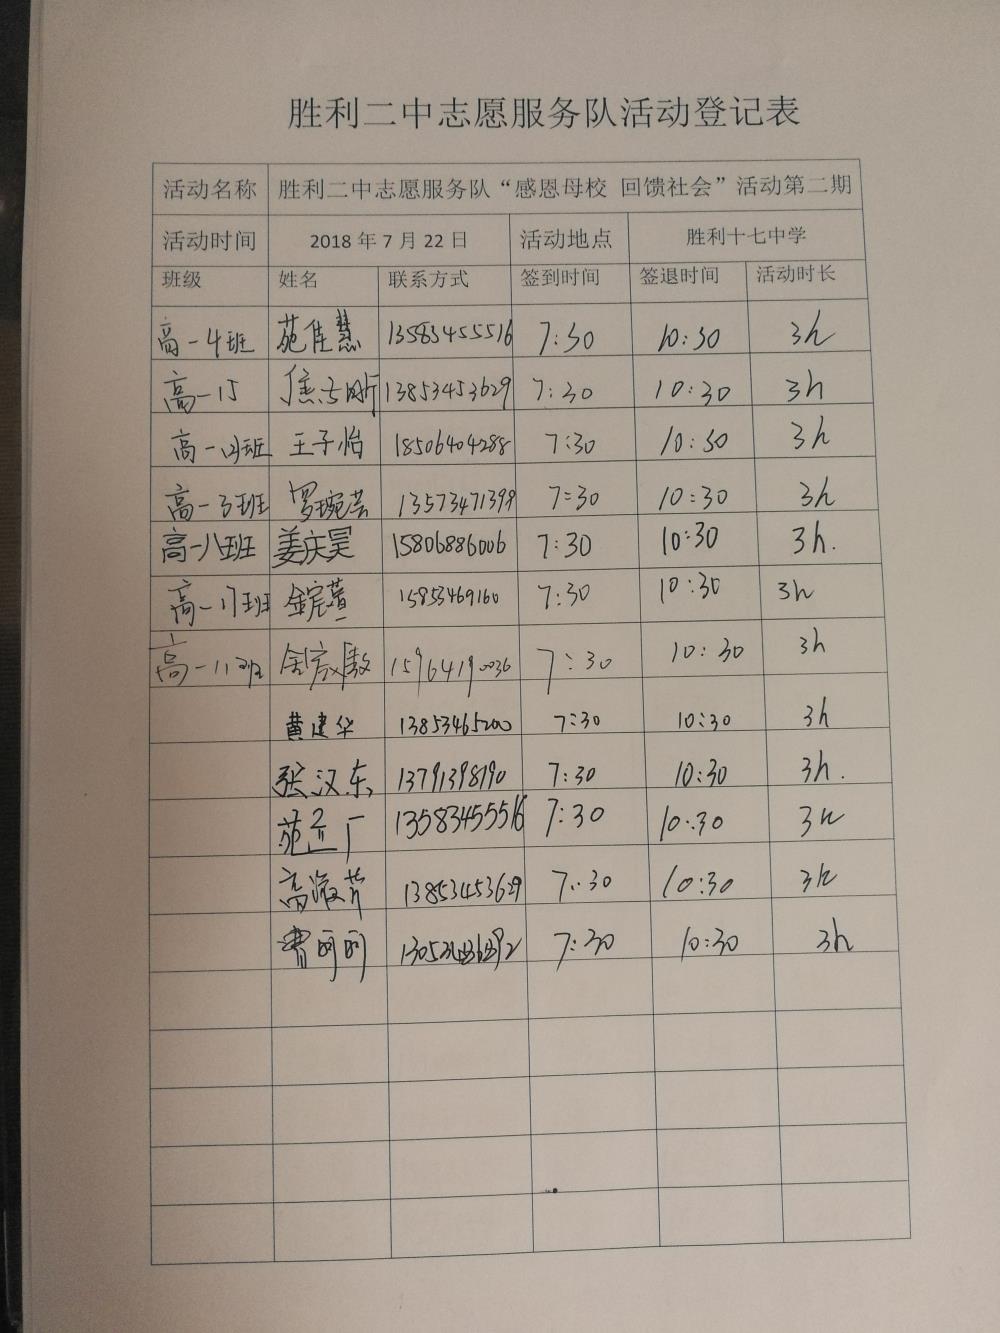 胜利二中志愿服务队活动登记表
活动名称 胜利二中志愿服务队“感恩母校 回馈社会”活动第二期
活动时间 2018 年 7 月 22 日 活动地点 胜利十七中学
班级 姓名 联系方式 签到时间 签退时间 活动时长
高一4班 苑佳慧 13583455516 7:30 10:30 3h
高一15 焦 13853453629 7:30 10:30 3h
高一 班 王子怡 18506404288 7:30 10:30 3h
高一3班 罗琬芸 13573471398 7:30 10:30 3h
高一八班 姜庆昊 15806886006 7:30 10:30 3h.
高一17班 15853469160 7:30 10:30 3h
高一11班 15964190036 7:30 10:30 3h
黄建华 13853465200 7:30 10:30 3h
张汉东 13791398190 7:30 10:30 3h.
苑 广 13583455516 7:30 10:30 3h
高淑芹 13853453629 7:30 10:30 3h
曹丽丽 7:30 10:30 3h